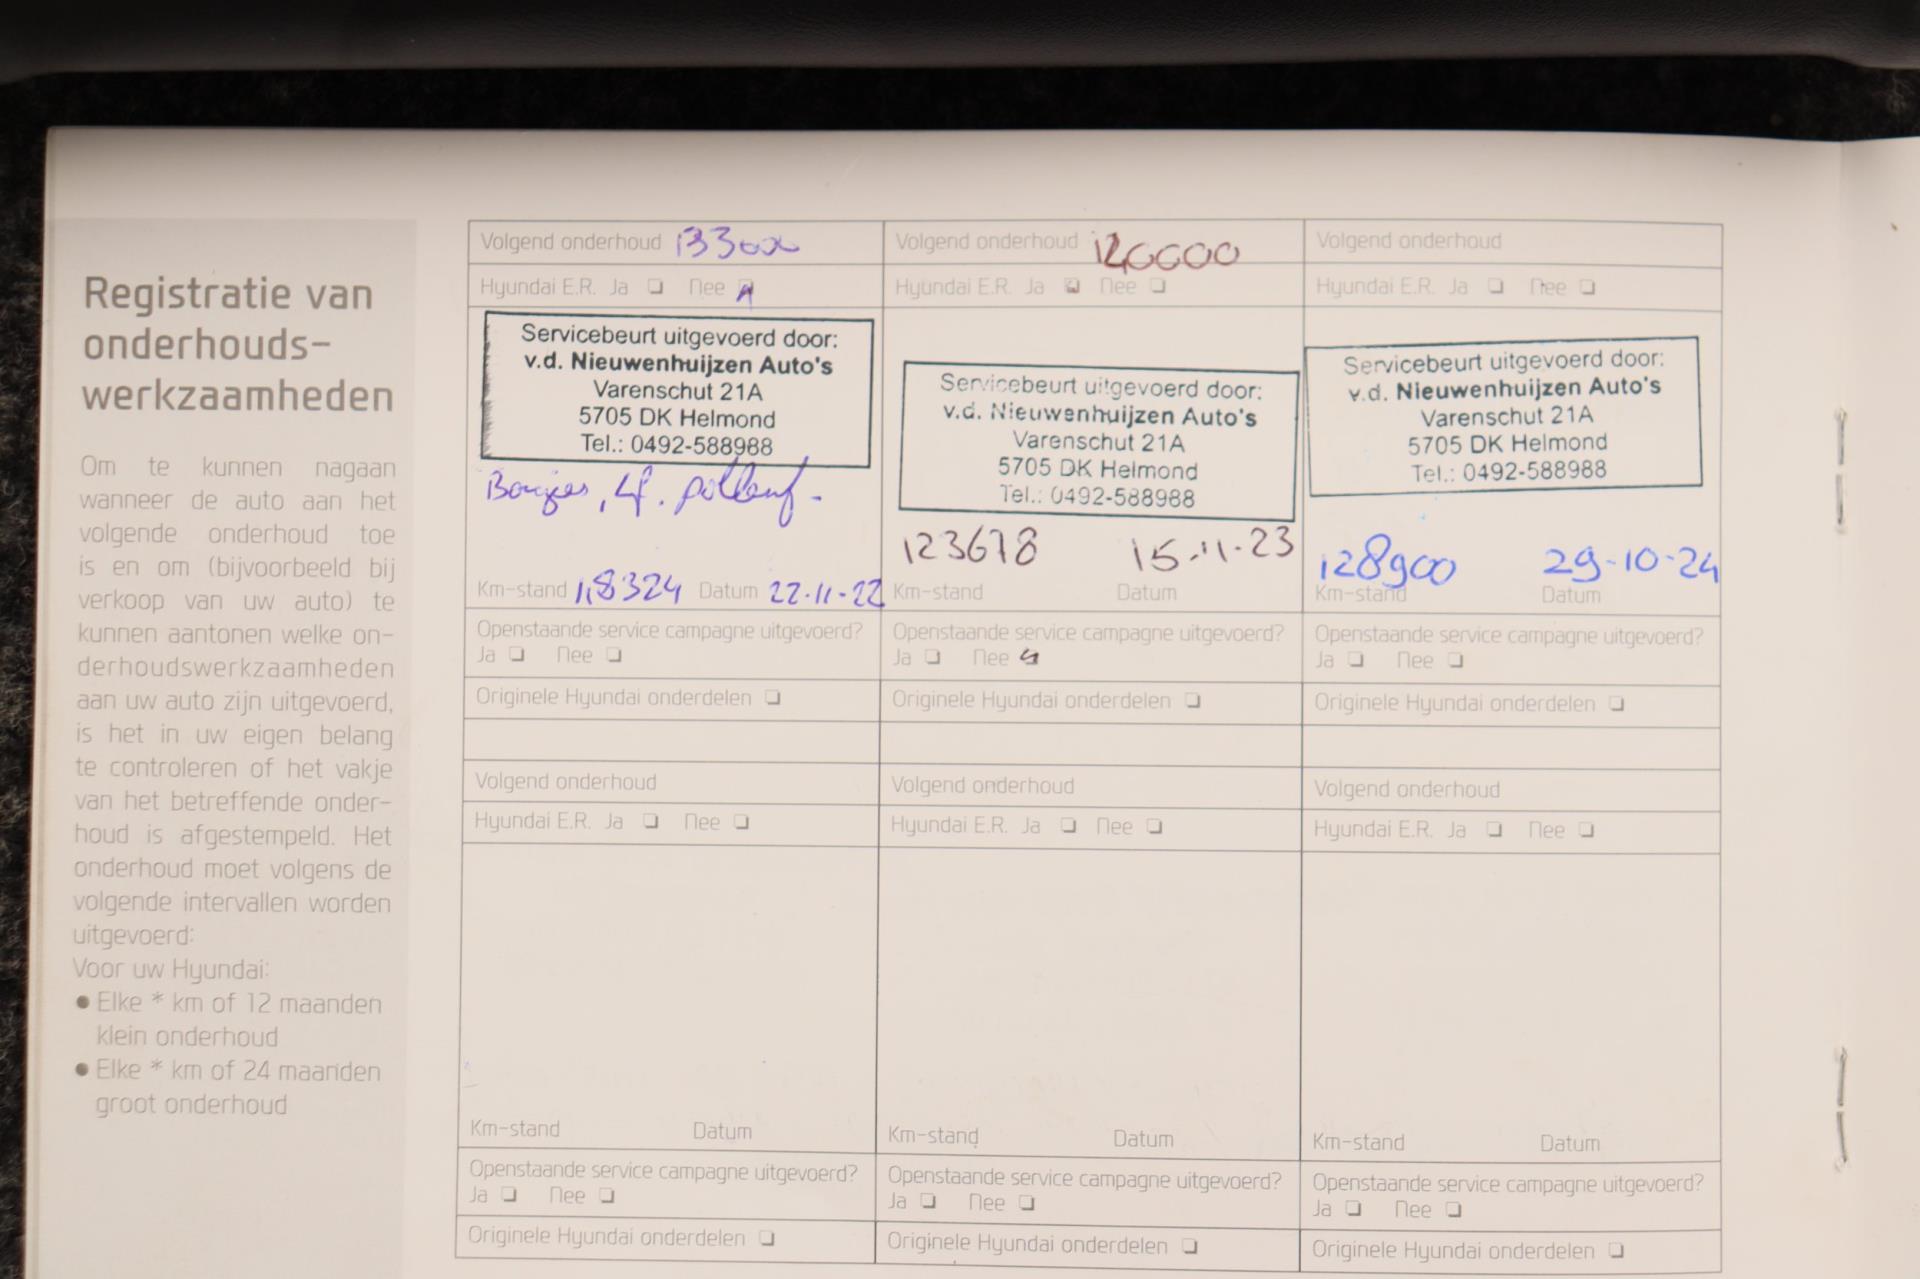 Registratie van
onderhouds-
werkzaamheden
Om te kunnen nagaan
wanneer de auto aan het
volgende onderhoud toe
is en om (bijvoorbeeld bij
verkoop van uw auto) te
kunnen aantonen welke on-
derhoudswerkzaamheden
aan uw auto zijn uitgevoerd,
is het in uw eigen belang
te controleren of het vakje
van het betreffende onder-
houd is afgestempeld. Het
onderhoud moet volgens de
volgende intervallen worden
uitgevoerd:
Voor uw Hyundai:
● Elke * km of 12 maanden
klein onderhoud
● Elke * km of 24 maanden
groot onderhoud
Volgend onderhoud 133000
Hyundai E.R. Ja Nee
Servicebeurt uitgevoerd door:
v.d. Nieuwenhuijzen Auto's
Varenschut 21A
5705 DK Helmond
Tel.: 0492-588988
Bougies, Lf.
Km-stand 118324 Datum 22-11-22
Openstaande service campagne uitgevoerd?
Ja Nee
Originele Hyundai onderdelen
Volgend onderhoud
Hyundai E.R. Ja Nee
Servicebeurt uitgevoerd door:
v.d. Nieuwenhuijzen Auto's
Varenschut 21A
5705 DK Helmond
Tel.: 0492-588988
123678 15-11-23
Km-stand Datum
Openstaande service campagne uitgevoerd?
Ja Nee
Originele Hyundai onderdelen
Volgend onderhoud
Hyundai E.R. Ja Nee
Servicebeurt uitgevoerd door:
v.d. Nieuwenhuijzen Auto's
Varenschut 21A
5705 DK Helmond
Tel.: 0492-588988
128900 29-10-24
Km-stand Datum
Openstaande service campagne uitgevoerd?
Ja Nee
Originele Hyundai onderdelen
Volgend onderhoud
Hyundai E.R. Ja Nee
Km-stand Datum
Openstaande service campagne uitgevoerd?
Ja Nee
Originele Hyundai onderdelen
Volgend onderhoud
Hyundai E.R. Ja Nee
Km-stand Datum
Openstaande service campagne uitgevoerd?
Ja Nee
Originele Hyundai onderdelen
Volgend onderhoud
Hyundai E.R. Ja Nee
Km-stand Datum
Openstaande service campagne uitgevoerd?
Ja Nee
Originele Hyundai onderdelen